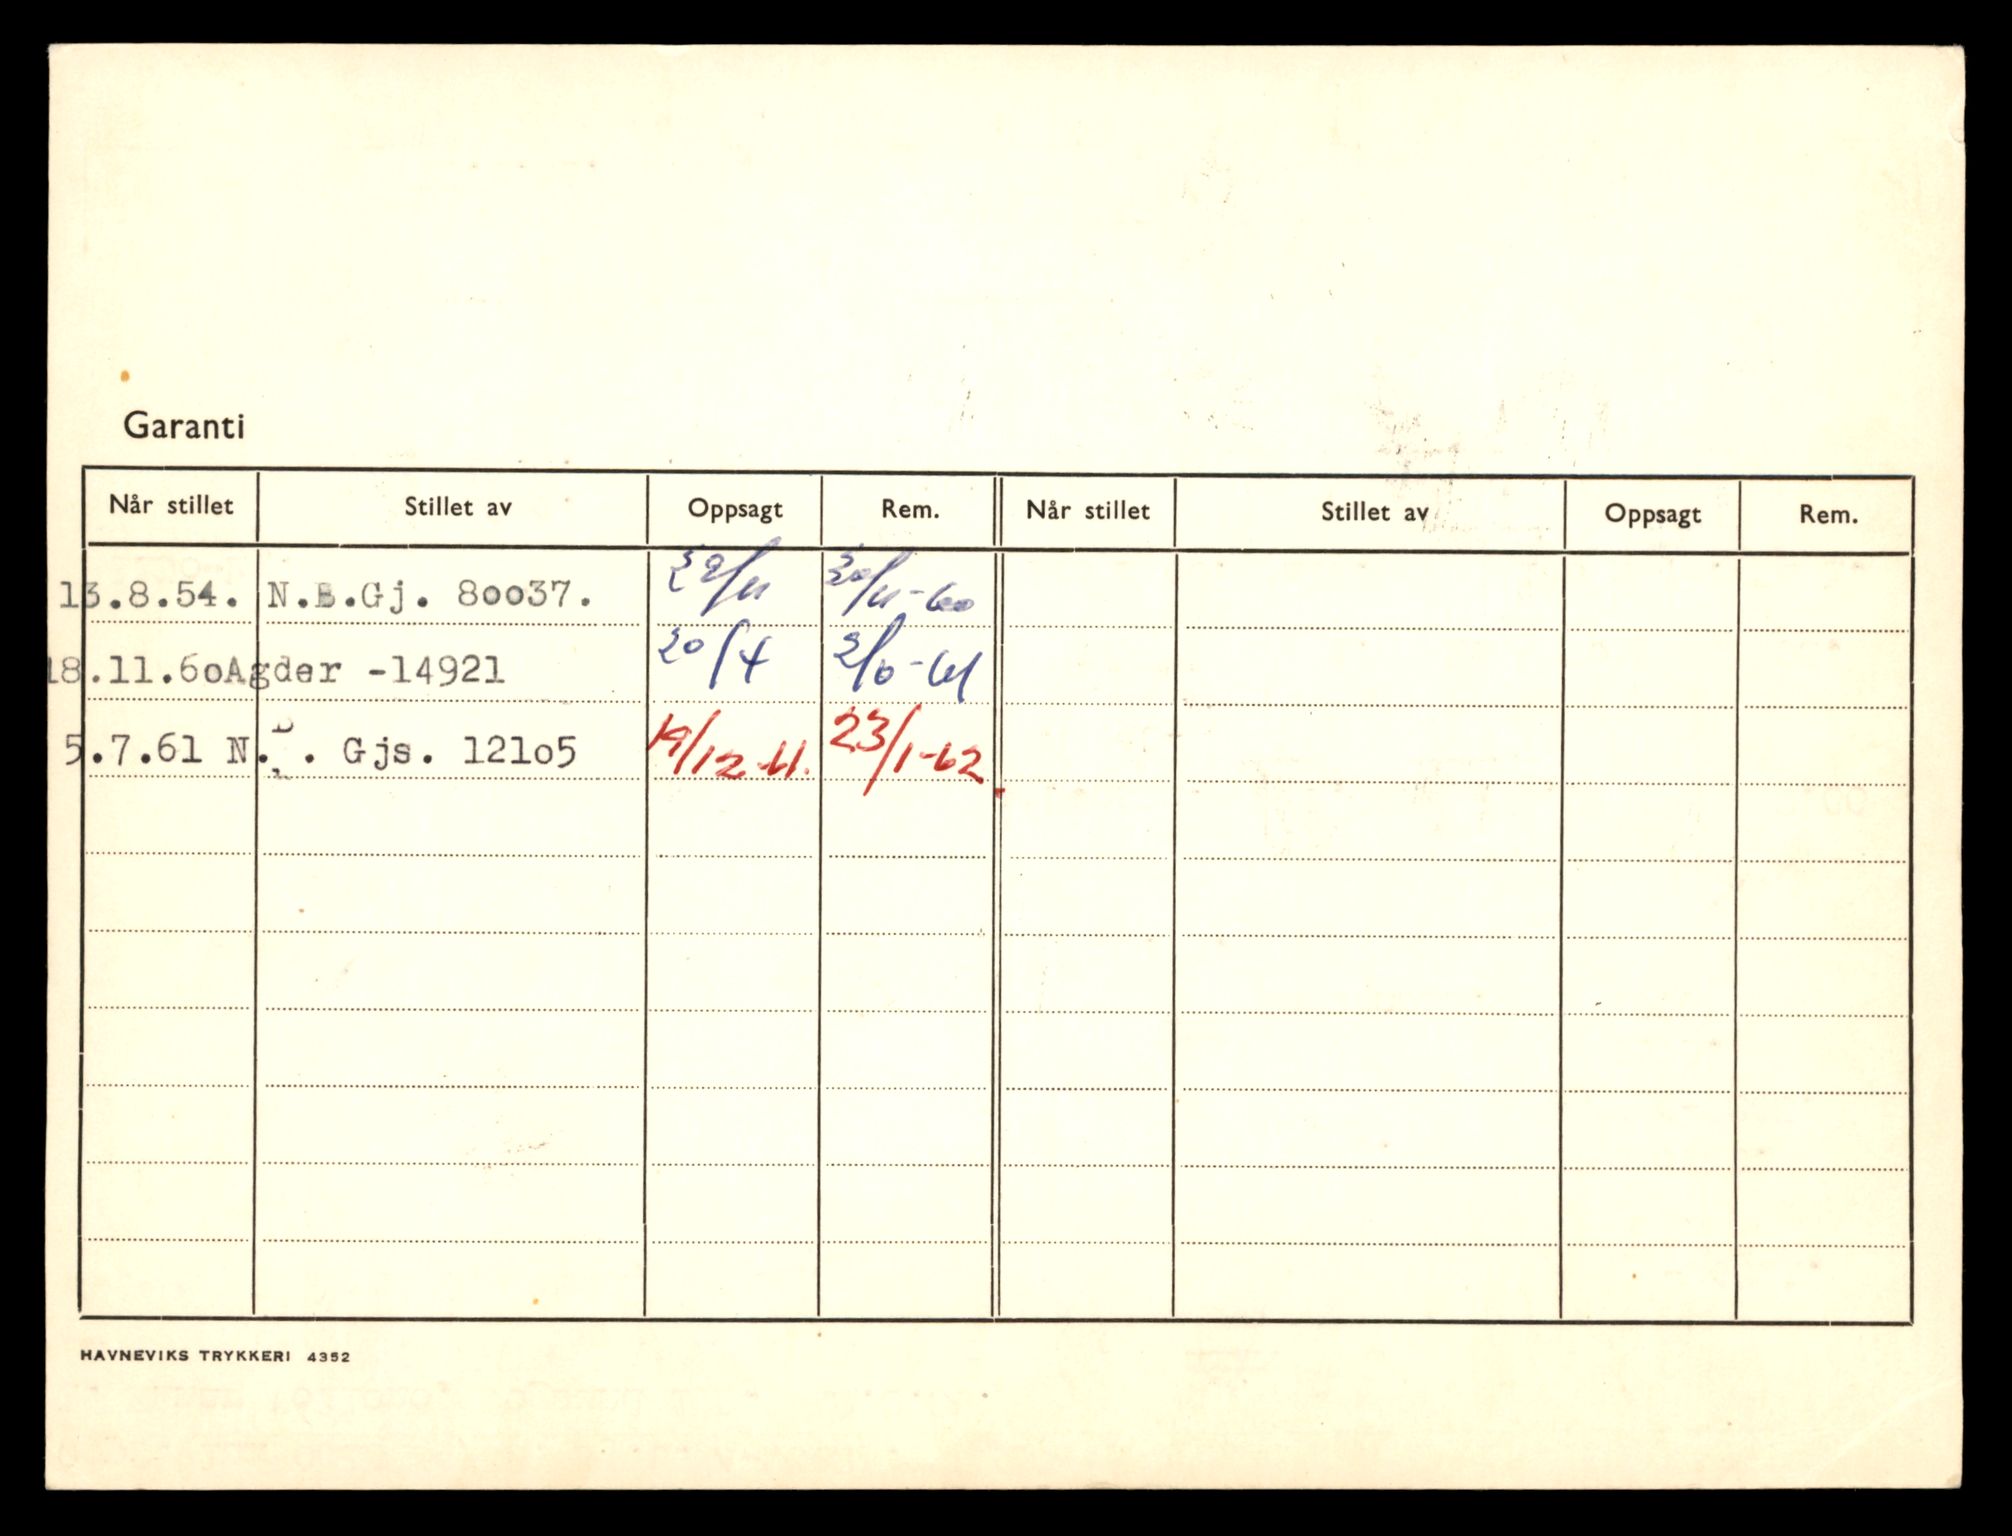 Garanti
Når stillet Stillet av Oppsagt Rem. Når stillet Stillet av Oppsagt Rem.
13.8.54. N.B.Gj. 80037. 29/11 30/11-60
18.11.60 Agder -14921 20/4 2/6-61
5.7.61 N.B. Gjs. 12105 19/12-61. 23/1-62.
HAVNEVIKS TRYKKERI 4352